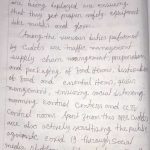 are being deployed are ensuring
they get proper safety equipment
like masks and gloves.
Among the various duties performed
by cadets are traffic management
supply chain management, preparation
and packaging of food items, distribution
of food and essential items, queue
management, ensuring social distancing
manning control centres and CCTV
control rooms. Apart from this NCC cadets
are also actively sensitizing the public
against covid 19 through Social
media